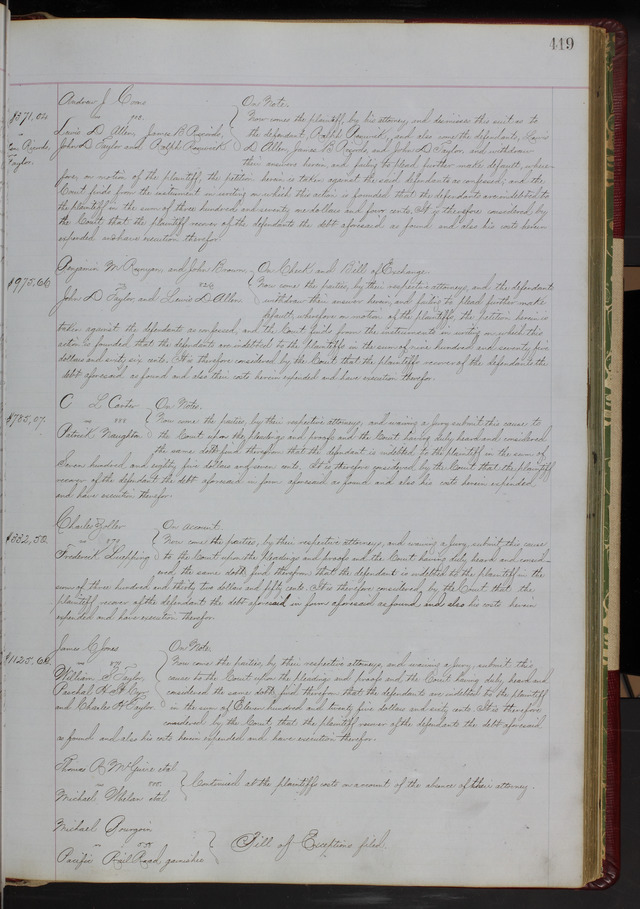 419
Andrew J. Coons On Note.
$371,04 vs Now comes the plaintiff, by his attorney, and dismisses this suit as to
Lewis D Allen, James B the defendant, Ralph and also come the defendants, Lewis
John D Taylor and Ralph D Allen, James B and John D Taylor, and withdraw
Taylor. their answers herein and failing to plead further make default, where-
fore, on motion of the plaintiff, the petition herein is taken against the said defendants as confessed, and the
Court finds from the instrument in writing on which this action is founded that the defendants are indebted to
the plaintiff in the sum of three hundred and seventy one dollars and four cents. It is therefore considered, by
the Court that the plaintiff recover of the defendants the debt aforesaid as found and also his costs herein
expended and have execution therefor.
Benjamin M Runyon and John Brown On Check and Bill of Exchange.
$975,66 vs Now come the parties, by their respective attorneys, and the defendants
John D Taylor and Lewis D Allen withdraw their answer herein, and failing to plead further make
default, wherefore on motion of the plaintiffs, the petition herein is
taken against the defendants as confessed, and the Court finds from the instruments in writing on which this
action is founded, that the defendants are indebted to the plaintiffs in the sum of nine hundred and seventy five
dollars and sixty six cents. It is therefore considered by the Court that the plaintiffs recover of the defendants the
debt aforesaid as found and also their costs herein expended and have execution therefor.
C L Carter On Notes.
$785,07. vs Now come the parties, by their respective attorneys, and waiving a jury submit this cause to
Patrick Naughton the Court upon the pleadings and proofs and the Court having duly heard and considered
the same doth find therefrom that the defendant is indebted to the plaintiff in the sum of
Seven hundred and eighty five dollars and seven cents. It is therefore considered by the Court that the plaintiff
recover of the defendant the debt aforesaid in form aforesaid as found and also his costs herein expended
and have execution therefor.
Charles Zoller On account.
$332,50. vs Now come the parties, by their respective attorneys, and waiving a jury, submit this cause
Frederick Luepping to the Court upon the pleadings and proofs and the Court having duly heard and consid-
ered the same doth find therefrom, that the defendant is indebted to the plaintiff in the
sum of three hundred and thirty two dollars and fifty cents. It is therefore considered by the Court that the
plaintiff recover of the defendant the debt aforesaid in form aforesaid as found and also his costs herein
expended and have execution therefor.
James C Jones On Note.
$1125,60. vs Now come the parties, by their respective attorneys, and waiving a jury, submit this
William S Taylor, cause to the Court upon the pleadings and proofs and the Court having duly heard and
Paschal H considered the same doth find therefrom that the defendants are indebted to the plaintiff
and Charles H Taylor. in the sum of Eleven hundred and twenty five dollars and sixty cents. It is therefore
considered by the Court, that the plaintiff recover of the defendants the debt aforesaid
as found and also his costs herein expended and have execution therefor.
Thomas R McGuire et al
vs Continued at the plaintiffs costs on account of the absence of their attorney.
Michael Whelan et al.
Michael
vs Bill of Exceptions filed.
Pacific Rail Road garnishee